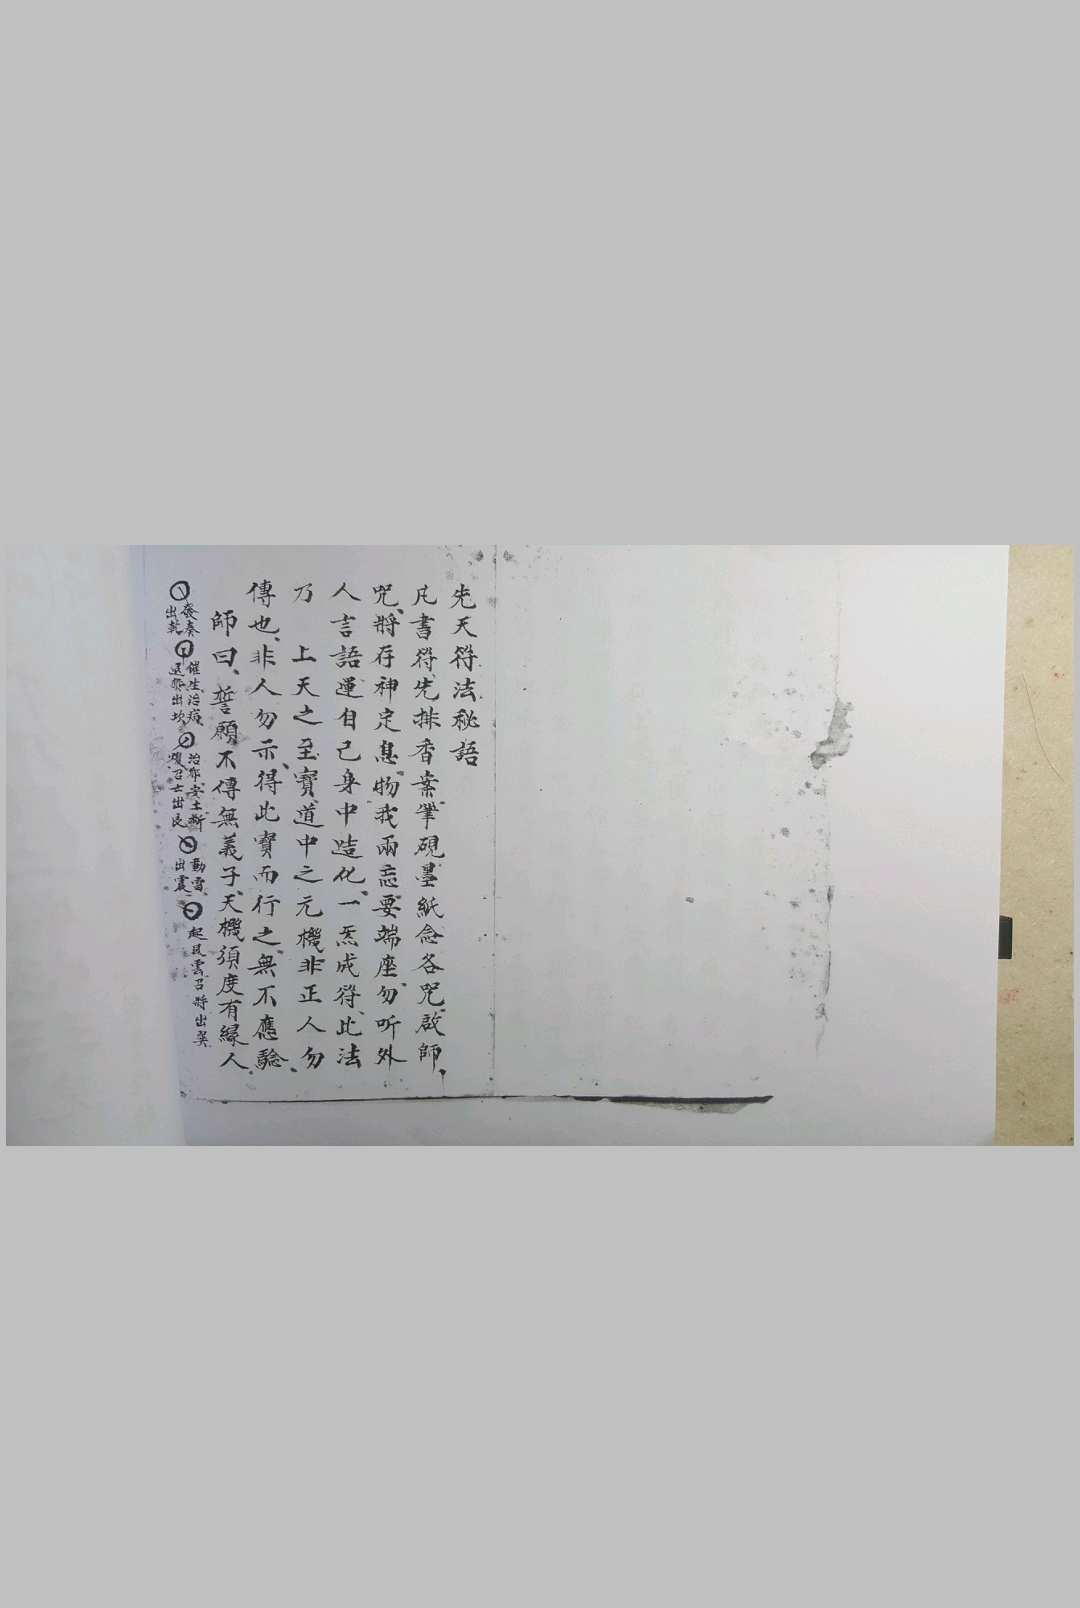 先天符法秘語
凡書符、先排香案筆硯墨紙念各咒啟師、
咒、將存神定息、物我兩忘、要端座、勿听外
人言語運自己身中造化、一炁成符、此法
乃 上天之至寶、道中之元機、非正人勿
傳也、非人勿示、得此寶而行之、無不應驗、
師曰、誓願不傳無義子、天機須度有緣人、
發奏出乾
催生治病、退邪出坎
治邪、安土斬 召亡出艮
動雷、出震
起風雲召將出巽